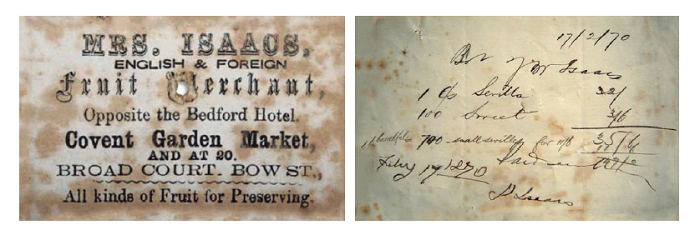 MRS. ISAACS,
ENGLISH & FOREIGN
Fruit Merchant,
Opposite the Bedford Hotel.
Covent Garden Market,
AND AT 20.
BROAD COURT. BOW ST.,
All kinds of Fruit for Preserving.
17/2/70
Isaacs
1 Sevilla
100 Sweet 3/6
700 small seville for
17 1870
Isaacs